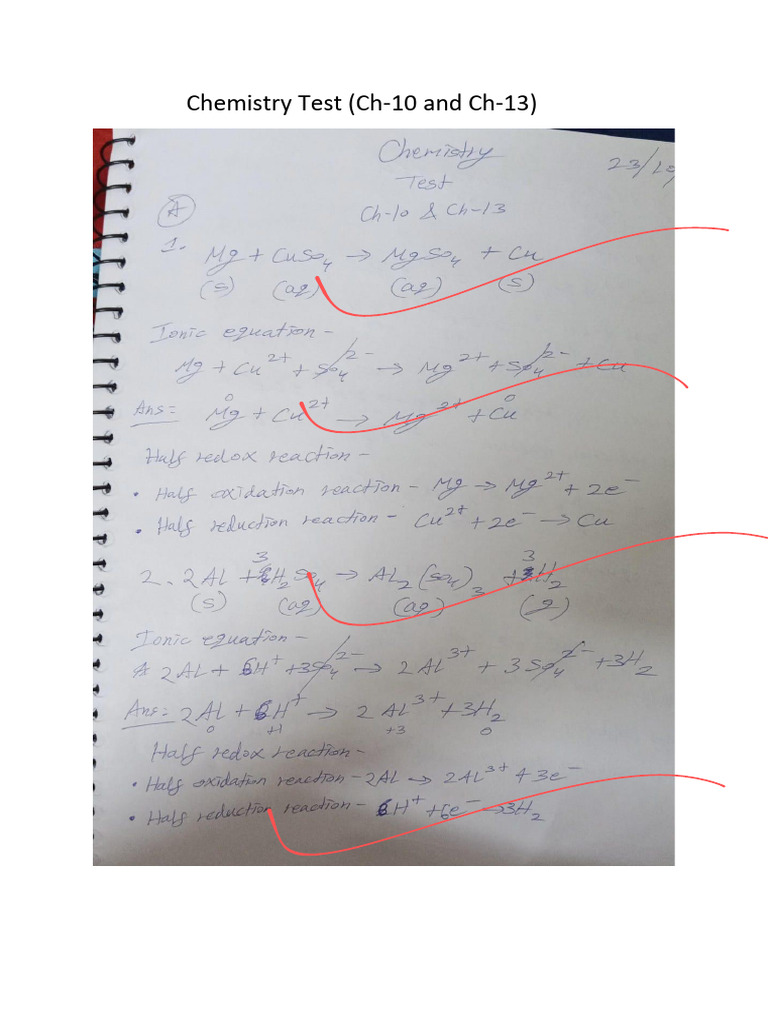 Chemistry Test (Ch-10 and Ch-13)
Chemistry
23/10
Test
Ch-10 & Ch-13
A
1. Mg + CuSo₄ → MgSo₄ + Cu
(s) (aq) (aq) (s)
Ionic equation -
Mg + Cu²⁺ + So₄²⁻ → Mg²⁺ + So₄²⁻ + Cu
Ans = Mg⁰ + Cu²⁺ → Mg²⁺ + Cu⁰
Half redox reaction -
• Half oxidation reaction - Mg → Mg²⁺ + 2e⁻
• Half reduction reaction - Cu²⁺ + 2e⁻ → Cu
2. 2AL + 3H₂So₄ → AL₂(So₄)₃ + 3H₂
(s) (aq) (aq) (g)
Ionic equation -
2AL + 6H⁺ + 3So₄²⁻ → 2AL³⁺ + 3So₄²⁻ + 3H₂
Ans = 2AL + 6H⁺ → 2AL³⁺ + 3H₂
0 +1 +3 0
Half redox reaction -
• Half oxidation reaction - 2AL → 2AL³⁺ + 3e⁻
• Half reduction reaction - 6H⁺ + 6e⁻ → 3H₂